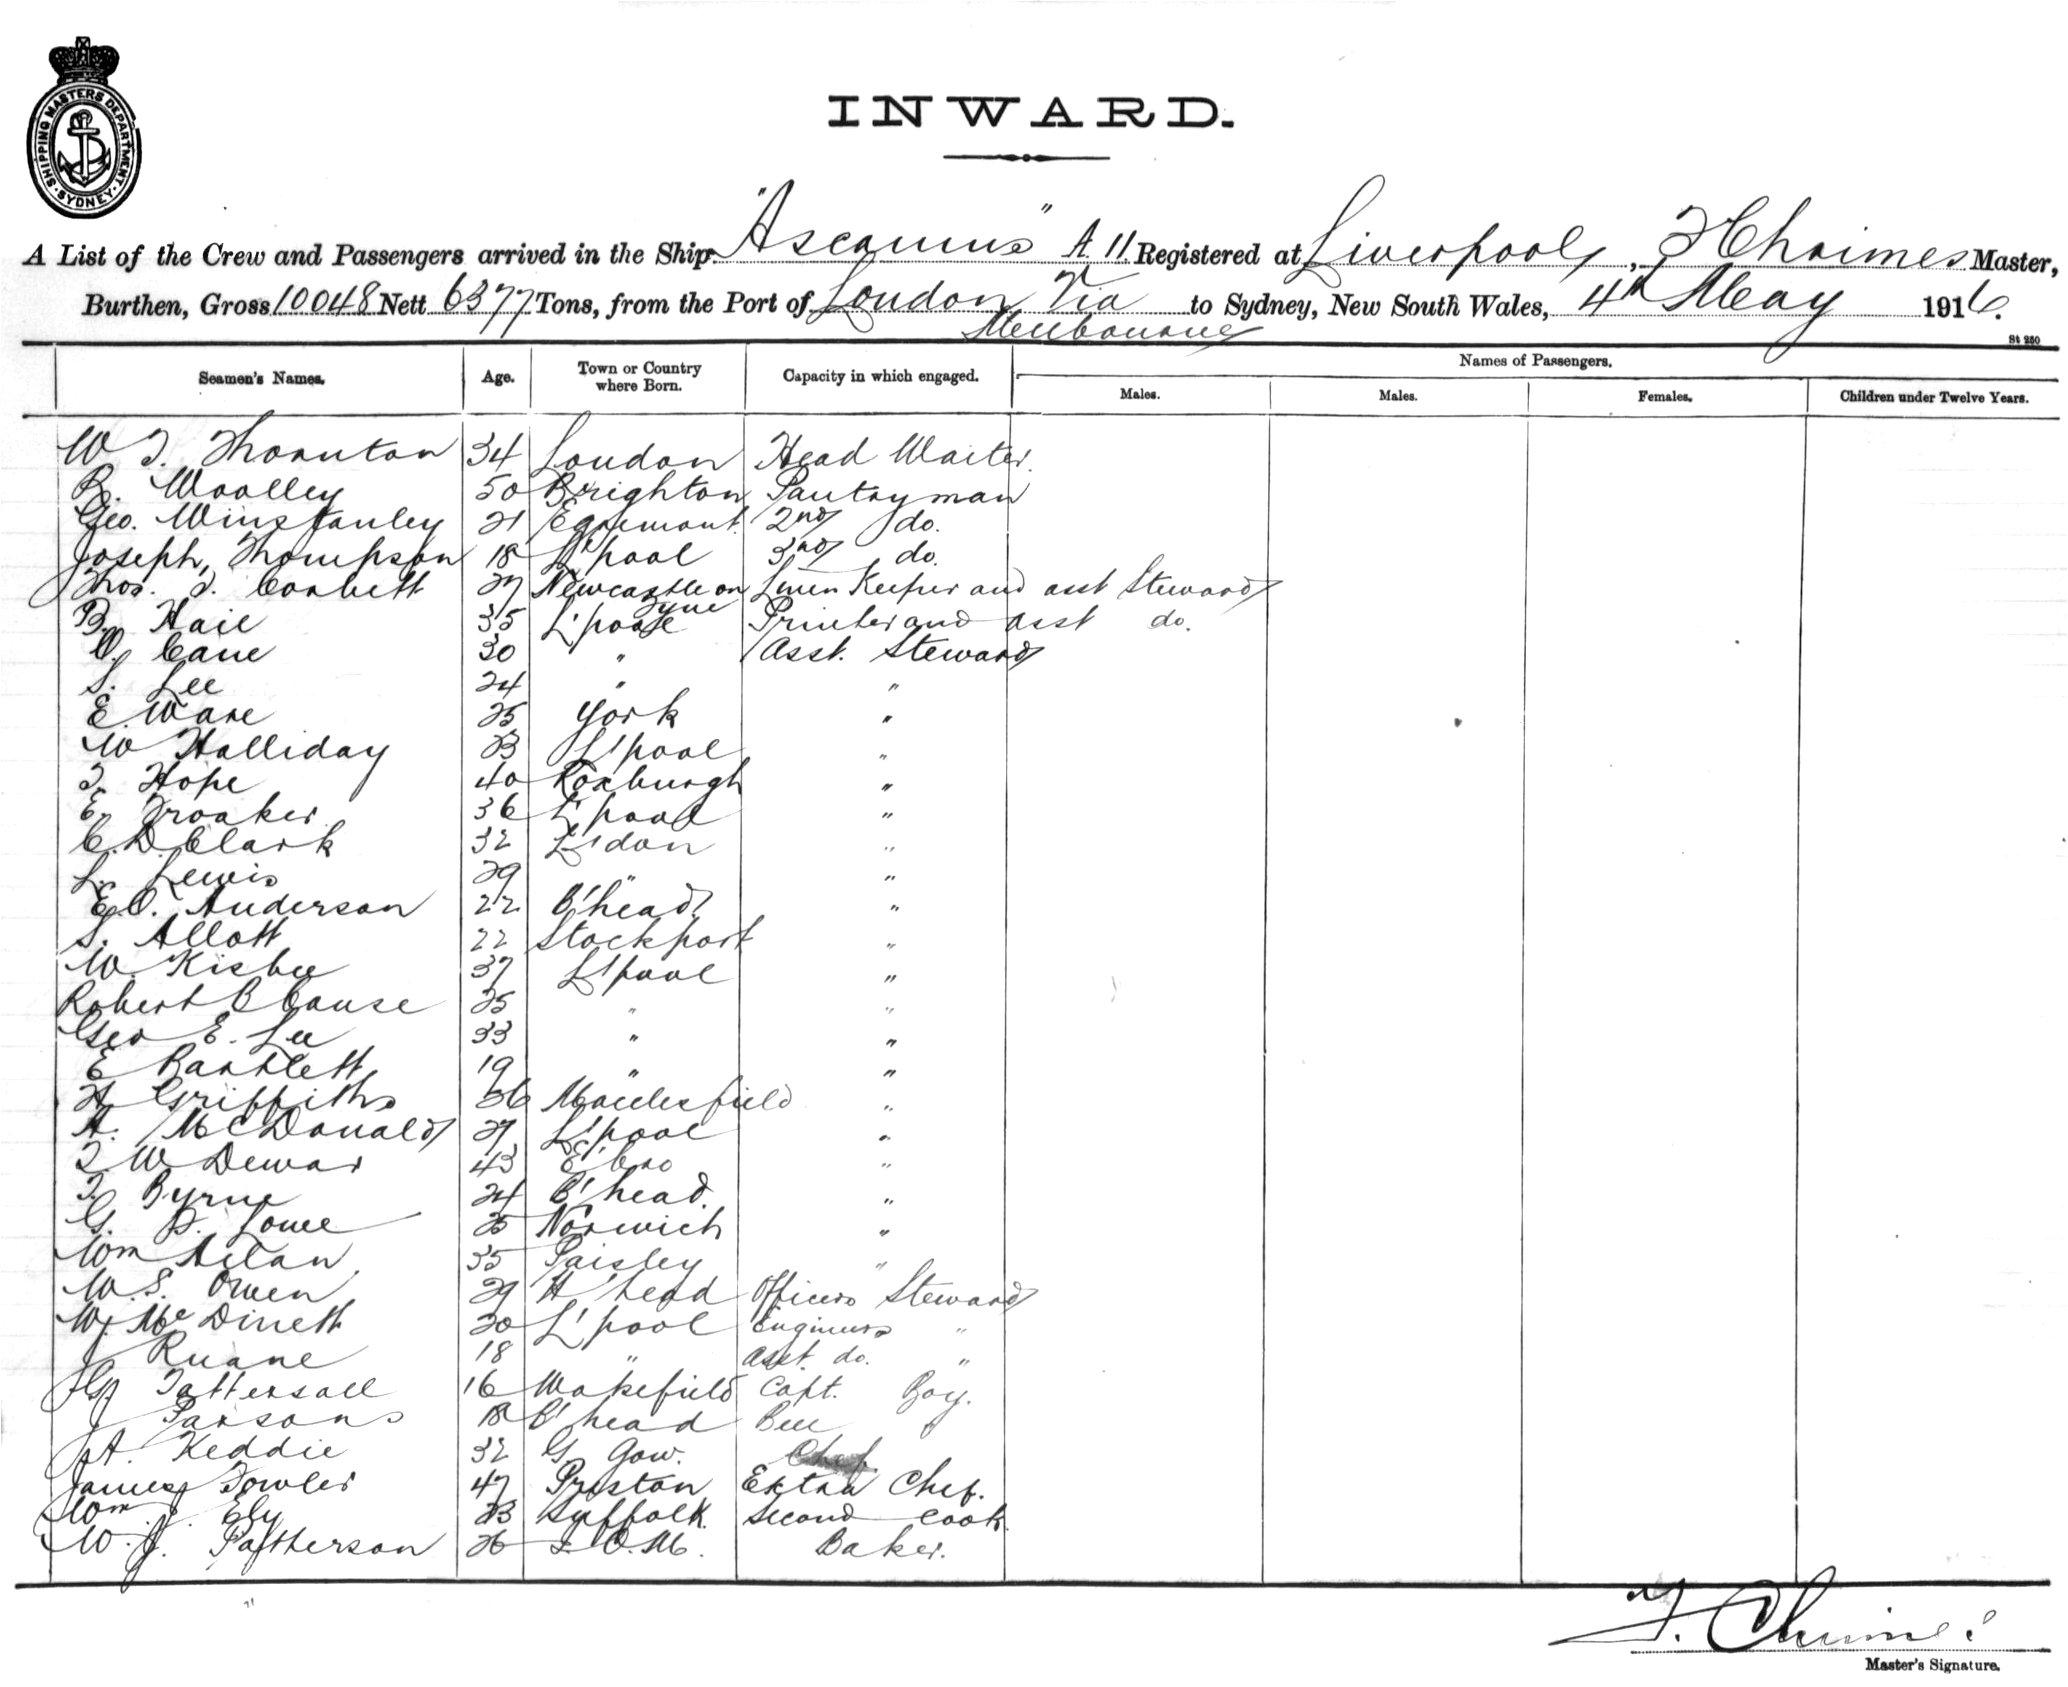 SHIPPING MASTERS DEPARTMENT
SYDNEY
INWARD.
A List of the Crew and Passengers arrived in the Ship "Ascanius" A.11. Registered at Liverpool, F Chrimes Master,
Burthen, Gross 10048 Nett 6377 Tons, from the Port of London Via to Sydney, New South Wales, 4th May 1916.
Melbourne
St 250
Seamen's Names. Age. Town or Country where Born. Capacity in which engaged. Names of Passengers.
Males. Males. Females. Children under Twelve Years.
W T. Thornton 34 London Head Waiter.
R. Woolley 50 Brighton Pantryman
Geo. Winstanley 21 Egremont 2nd do.
Joseph Thompson 18 L'pool 3rd do.
Thos. J. Corbett 27 Newcastle on Tyne Linen Keeper and asst Steward
B. Haie 35 L'pool Printer and asst do.
O. Cane 30 " Asst. Steward
S. Lee 24 " "
E. Ware 25 York "
W Halliday 23 L'pool "
T. Hope 40 Roxburgh "
E. Troaker 36 L'pool "
C. D. Clark 32 L'don "
L. Lewis 29 " "
E. O. Anderson 22 B'head "
S. Allott 22 Stockport "
W. Kisbee 37 L'pool "
Robert B Cause 25 " "
Geo E. Lee 33 " "
E Bartlett 19 " "
H Griffiths 36 Macclesfield "
A. McDonald 27 L'pool "
T W Dewar 43 E'bro "
T. Byrne 24 B'head. "
G. P. Lowe 25 Norwich "
Wm Aitan 35 Paisley "
W. S. Owen 29 H'head Officers Steward
W. Mc Dinett 20 L'pool Engineers "
J Ruane 18 " Asst. do. "
Tattersall 16 Wakefield Capt. Boy.
J Parsons 18 B'head Bell
A. Keddie 32 G Gow. Chef
James Fowler 47 Preston Extra Chef.
Wm. J. Ely 23 Suffolk Second Cook.
W. J. Patterson 26 I. O. M. Baker.
F. Chrimes
Master's Signature.